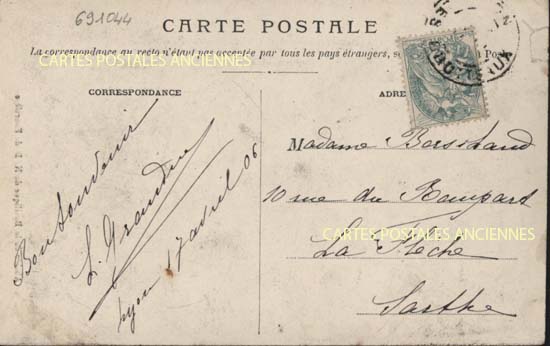 691044
CARTE POSTALE
La correspondance au recto n'étant pas acceptée par tous les pays étrangers, se
CARTES POSTALES ANCIENNES
CORRESPONDANCE
ADRE
Bon Souvenir
Lyon 17 avril 06
Madame
10 rue du Rempart
CARTES POSTALES ANCIENNES
La Flèche
Sarthe